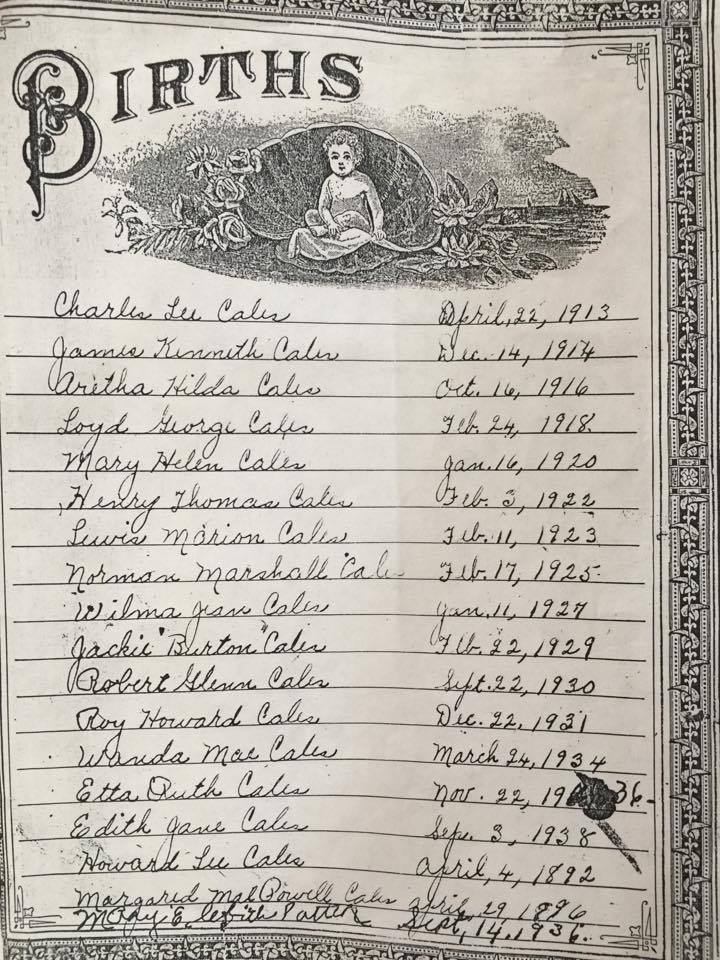 BIRTHS
Charles Lee Cales April, 22, 1913
James Kenneth Cales Dec. 14, 1914
Aretha Hilda Cales Oct. 16, 1916
Loyd George Cales Feb. 24, 1918.
Mary Helen Cales Jan. 16, 1920
Henry Thomas Cales Feb. 3, 1922
Lewis Marion Cales Feb. 11, 1923
Norman Marshall Cales Feb. 17, 1925.
Wilma Jean Cales Jan. 11, 1927
Jackie "Burton" Cales Feb. 22, 1929
Robert Glenn Cales Sept. 22, 1930
Roy Howard Cales Dec. 22, 1931
Wanda Mae Cales March 24, 1934
Etta Ruth Cales Nov. 22, 19 36.
Edith Jane Cales Sep. 3, 1938
Howard Lee Cales April, 4, 1892
Margared Mae Powell Cales April 29, 1896
Mary E. Sept, 14, 1936.